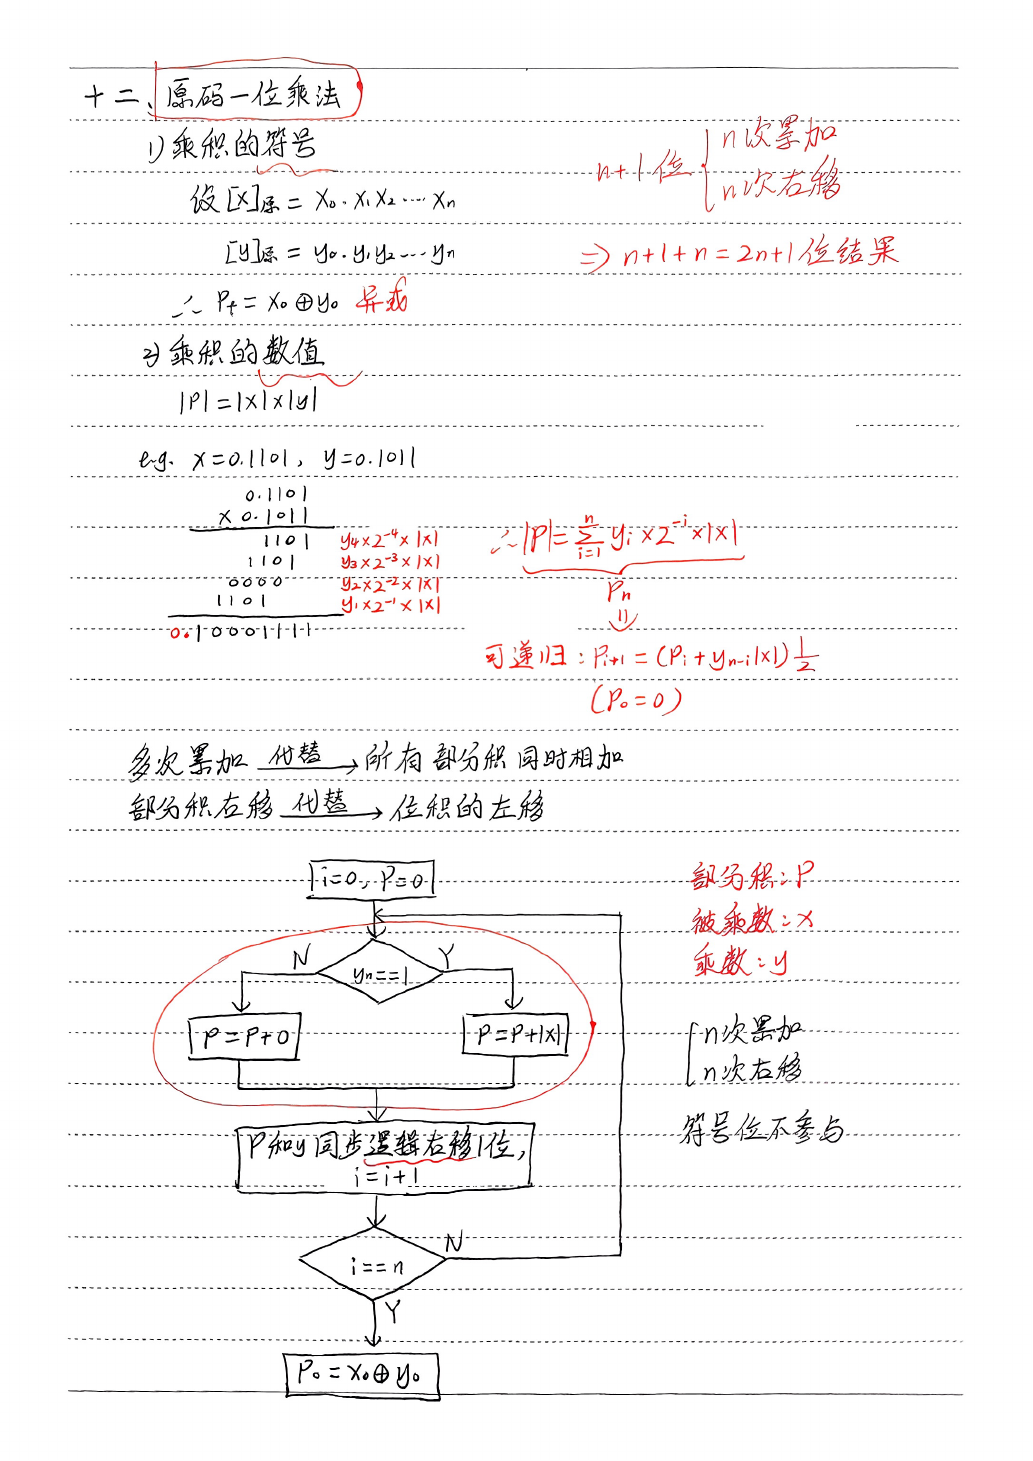 十二、原码一位乘法
1) 乘积的符号
n+1位 { n次累加
n次右移
设[x]原 = x₀.x₁x₂…xₙ
[y]原 = y₀.y₁y₂…yₙ
⇒ n+1+n=2n+1位结果
∴ Pf = x₀⊕y₀ 异或
2) 乘积的数值
|P|=|x|×|y|
e.g. x=0.1101, y=0.1011
0.1101
× 0.1011
1101 y₄×2⁻⁴×|x|
1101 y₃×2⁻³×|x|
0000 y₂×2⁻²×|x|
1101 y₁×2⁻¹×|x|
0.10001111
∴ |P|=∑ᵢ₌₁ⁿ yᵢ×2⁻ⁱ×|x|
Pₙ
⇓
可递归: Pᵢ₊₁=(Pᵢ+yₙ₋ᵢ|x|)1/2
(P₀=0)
多次累加 代替→ 所有部分积同时相加
部分积右移 代替→ 位积的左移
i=0, P=0
部分积: P
被乘数: x
乘数: y
N yₙ==1 Y
P=P+0 P=P+|x|
{ n次累加
n次右移
符号位不参与
P和y同步逻辑右移1位,
i=i+1
i==n N
Y
P₀=x₀⊕y₀